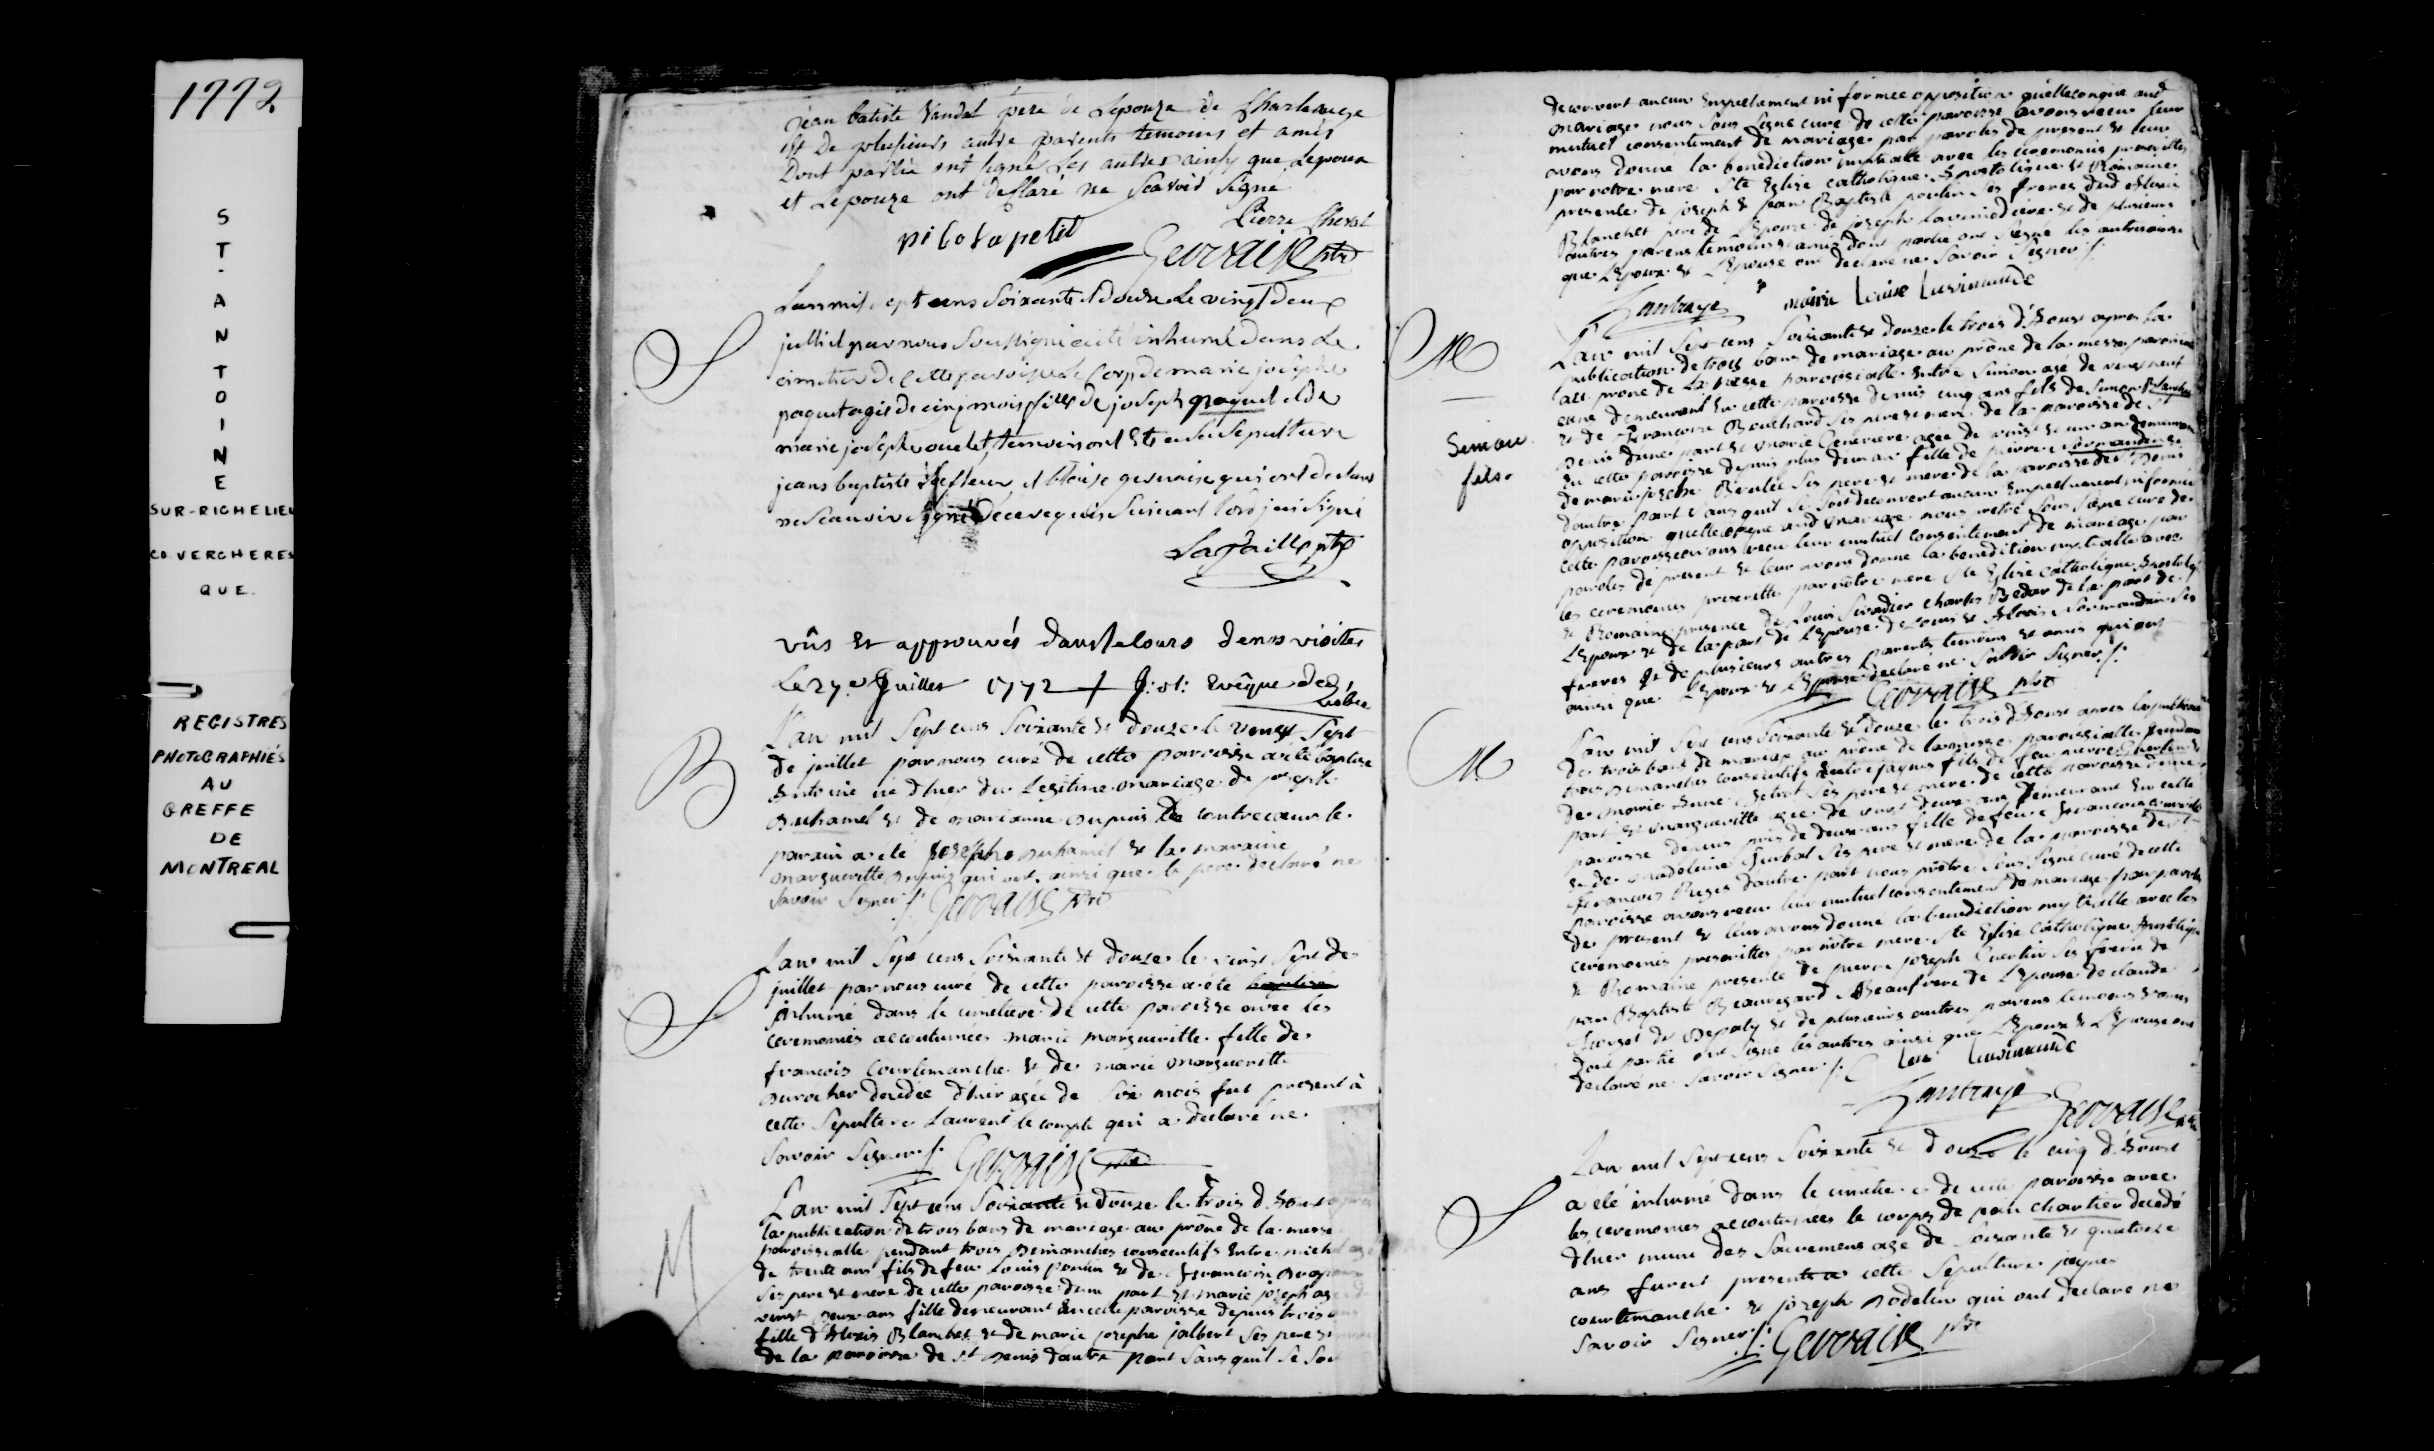 1772
ST. ANTOINE
SUR-RICHELIEU
CO VERCHERES
QUE.
REGISTRES
PHOTOGRAPHIÉS
AU
GREFFE
DE
MONTREAL
jean batiste vandal pere de Lepouze de Charle
et De plusieurs autre parents temoins et amis
Dont partie ont signé Les autres ainsy que Lepoux
et Lepouze ont declaré ne scavoir signe
Pierre Cheval
Gervaise ptre
S
Lan mil sept cens soixante et douze Le vingt deux
juillet par nous soussigné a eté inhumé dans Le
cimetiere de cette paroisse Le corp de marie josephe
paquet agée de cinq mois fille de joseph paquet et de
marie josephe ouelet temoins ont eté a sa sepulture
jeans baptiste et gervaise qui ont declaré
ne scauoir signé de ce requis suivant lordce
ptre
vûs et approuvés dans le cours de nos visites
Le 27e Juillet 1772 + J: ol: Evêque de Québec
B
L'an mil sept cens soixante et douze le vingt sept
de juillet par nous curé de cette paroisse a eté baptisé
Antoine né d'hier du Legitime mariage de joseph
Duhamel et de marianne Dupuis de contrecœur le
parain a eté josephe Duhamel et la maraine
marguerite Dupuis qui ont ainsi que le pere declaré ne
savoir signer /. Gervaise ptre
S
L'an mil sept cens soixante et douze le vingt sept de
juillet par nous curé de cette paroisse a été baptisé
inhumé dans le cimetiere de cette paroisse avec les
ceremonies accoutumées marie marguerite fille de
francois Courtemanche et de marie marguerite
Durocher decedée d'hier agée de six mois fut present à
cette sepulture Laurent le compte qui a declaré ne
savoir signer /. Gervaise ptre
M
L'an mil sept cens soixante et douze le trois d'Aoust
la publication de trois bans de mariage au prône de la messe
paroissialle pendant trois Dimanches consecutifs Entre michel
de trente ans fils de feu Louis poulin et de francoise
ses pere et mere de cette paroisse d'une part et marie joseph
vingt deux ans fille demeurant en cette paroisse depuis trois
fille d'Alexis Blanchet et de marie josephe jalbert ses pere et
de la paroisse de St Denis d'autre part sans qu'il se soit
decouvert aucun Empeschement ni formée opposition quelleconque aud
mariage nous sous signé curé de cette paroisse avons receu leur
mutuel consentement de mariage par paroles de present et leur
avons donné la benediction nuptialle avec les ceremonies prescrites
par notre mere Ste Eglise catholique Apostolique et Romaine
presence de joseph et jean Baptiste poulin ses freres dud Alexis
Blanchet pere de L'Epouse de joseph et de plusieurs
autres parens temoins et amis dont partie ont signé les autres ainsi
que L'Epoux et L'Epouse ont declaré ne savoir signer /.
marie Louise
M
Simon
fils
L'an mil sept cens soixante et douze le trois d'Aoust apres la
publication de trois bans de mariage au prône de la messe paroissialle
au prone de la messe paroissialle entre Simon agé de vingt neuf
ans demeurant en cette paroisse depuis cinq ans fils de Simon
et de francoise Bouchard ses pere et mere de la paroisse de St
Denis d'une part et marie Genevieve agée de vingt et un an demeurant
en cette paroisse depuis plus d'un an fille de pierre Normandin et
de marie josephe ses pere et mere de la paroisse de St Denis
d'autre part sans qu'il se soit decouvert aucun Empeschement ni formée
opposition quelleconque aud mariage nous ptre sous signé curé de
cette paroisse avons receu leur mutuel consentement de mariage par
paroles de present et leur avons donné la benediction nuptialle avec
les ceremonies prescrittes par nôtre mere Ste Eglise catholique Apostolique
et Romaine presence de Louis charles Bedar de la part de
L'Epoux et de la part de L'Epouse de Louis et Alexis Normandin ses
freres et de plusieurs autres parents temoins et amis qui ont
ainsi que L'Epoux et L'Epouse declaré ne savoir signer /.
Gervaise ptre
M
L'an mil sept cens soixante et douze le trois d'Aoust apres la publication
de trois bans de mariage au prône de la messe paroissialle pendant
trois Dimanches consecutifs Entre jaques fils de feu pierre Guertin et
de marie Anne ses pere et mere de cette paroisse d'une
part et marguerite agée de vingt deux ans demeurant en cette
paroisse depuis près de deux ans fille de feu francois
et de madeleine ses pere et mere de la paroisse de St
francois Regis d'autre part nous prêtre sous signé curé de cette
paroisse avons receu leur mutuel consentement de mariage par paroles
de present et leur avons donné la benediction nuptialle avec les
ceremonies prescrittes par nôtre mere Ste Eglise Catholique Apostolique
et Romaine presence de pierre joseph Guertin ses freres de
jean Baptiste Beauregard Beaufrere de L'Epouse de claude
et de plusieurs autres parens temoins et amis
dont partie ont signé les autres ainsi que L'Epoux et L'Epouse ont
declaré ne savoir signer /.
Gervaise ptre
S
L'an mil sept cens soixante et douze le cinq d'Aoust
a eté inhumé dans le cimetiere de cette paroisse avec
les ceremonies accoutumées le corps de chartier decedé
d'hier muni des sacremens agé de soixante et quatorze
ans furent presents a cette sepulture jaques
courtemanche et joseph nodelin qui ont declaré ne
savoir signer /. Gervaise ptre